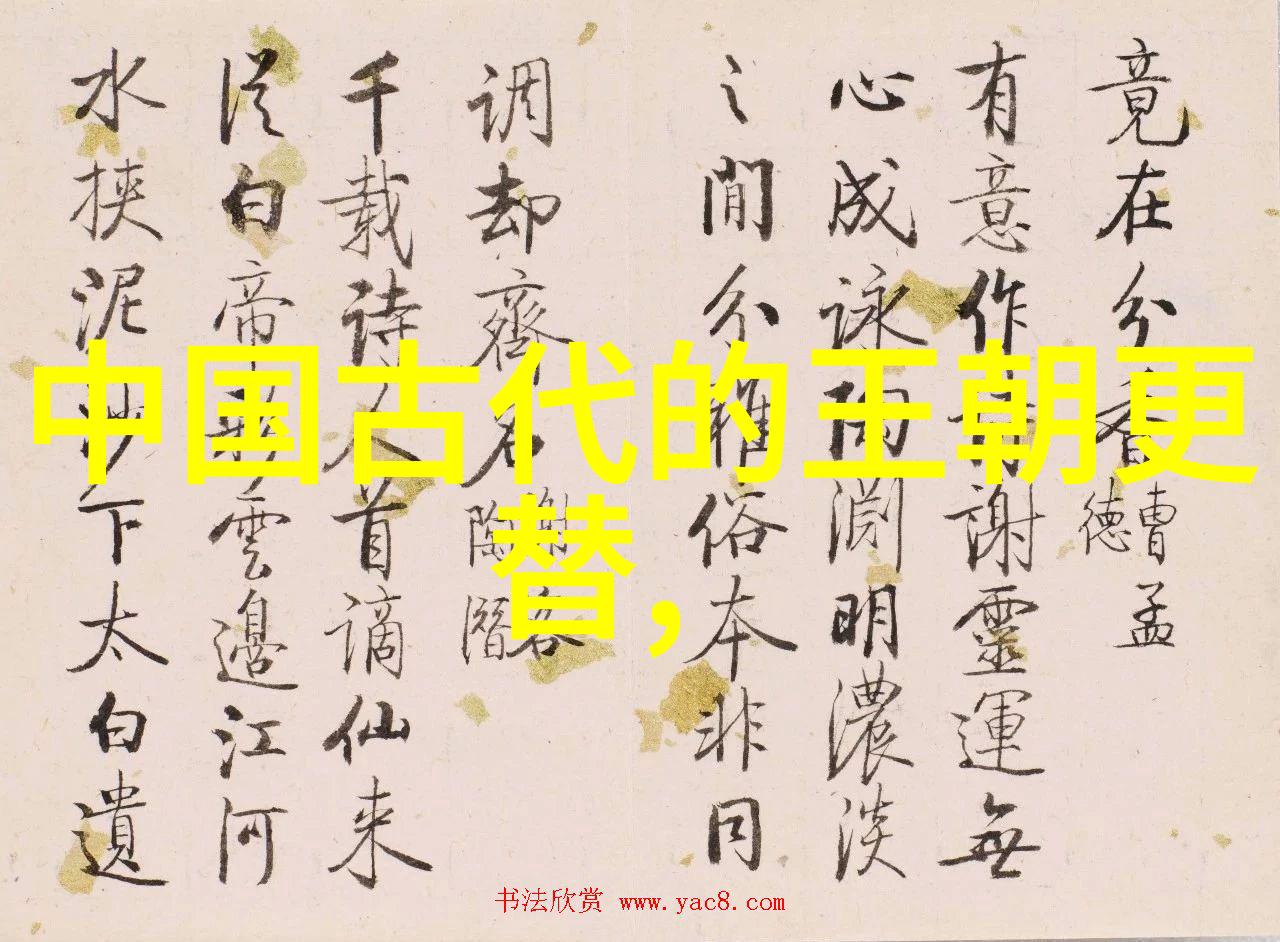 竟在分香曹孟德
有意作詩謝靈運無
心成詠陶淵明濃淡
之間分雅俗本非同
調却齊名謝客陶潛
千載詩人首謫仙来
從白帝彩雲邊江河
水挾泥沙下太白遺
中国古代的王朝更
替，
书法欣赏 www.yac8.com